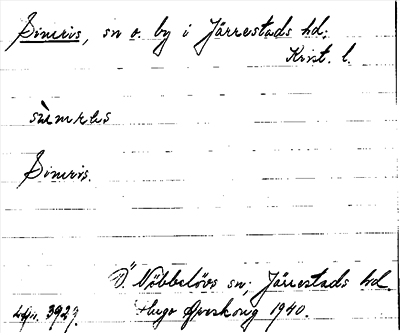 Simris, sn o. by i Järrestads hd;
Krist. l.
sìmrɛs
Simris.
Ö. Nöbbelövs sn; Järrestads hd.
Lyn. 3927. Hugo Areskoug 1940.